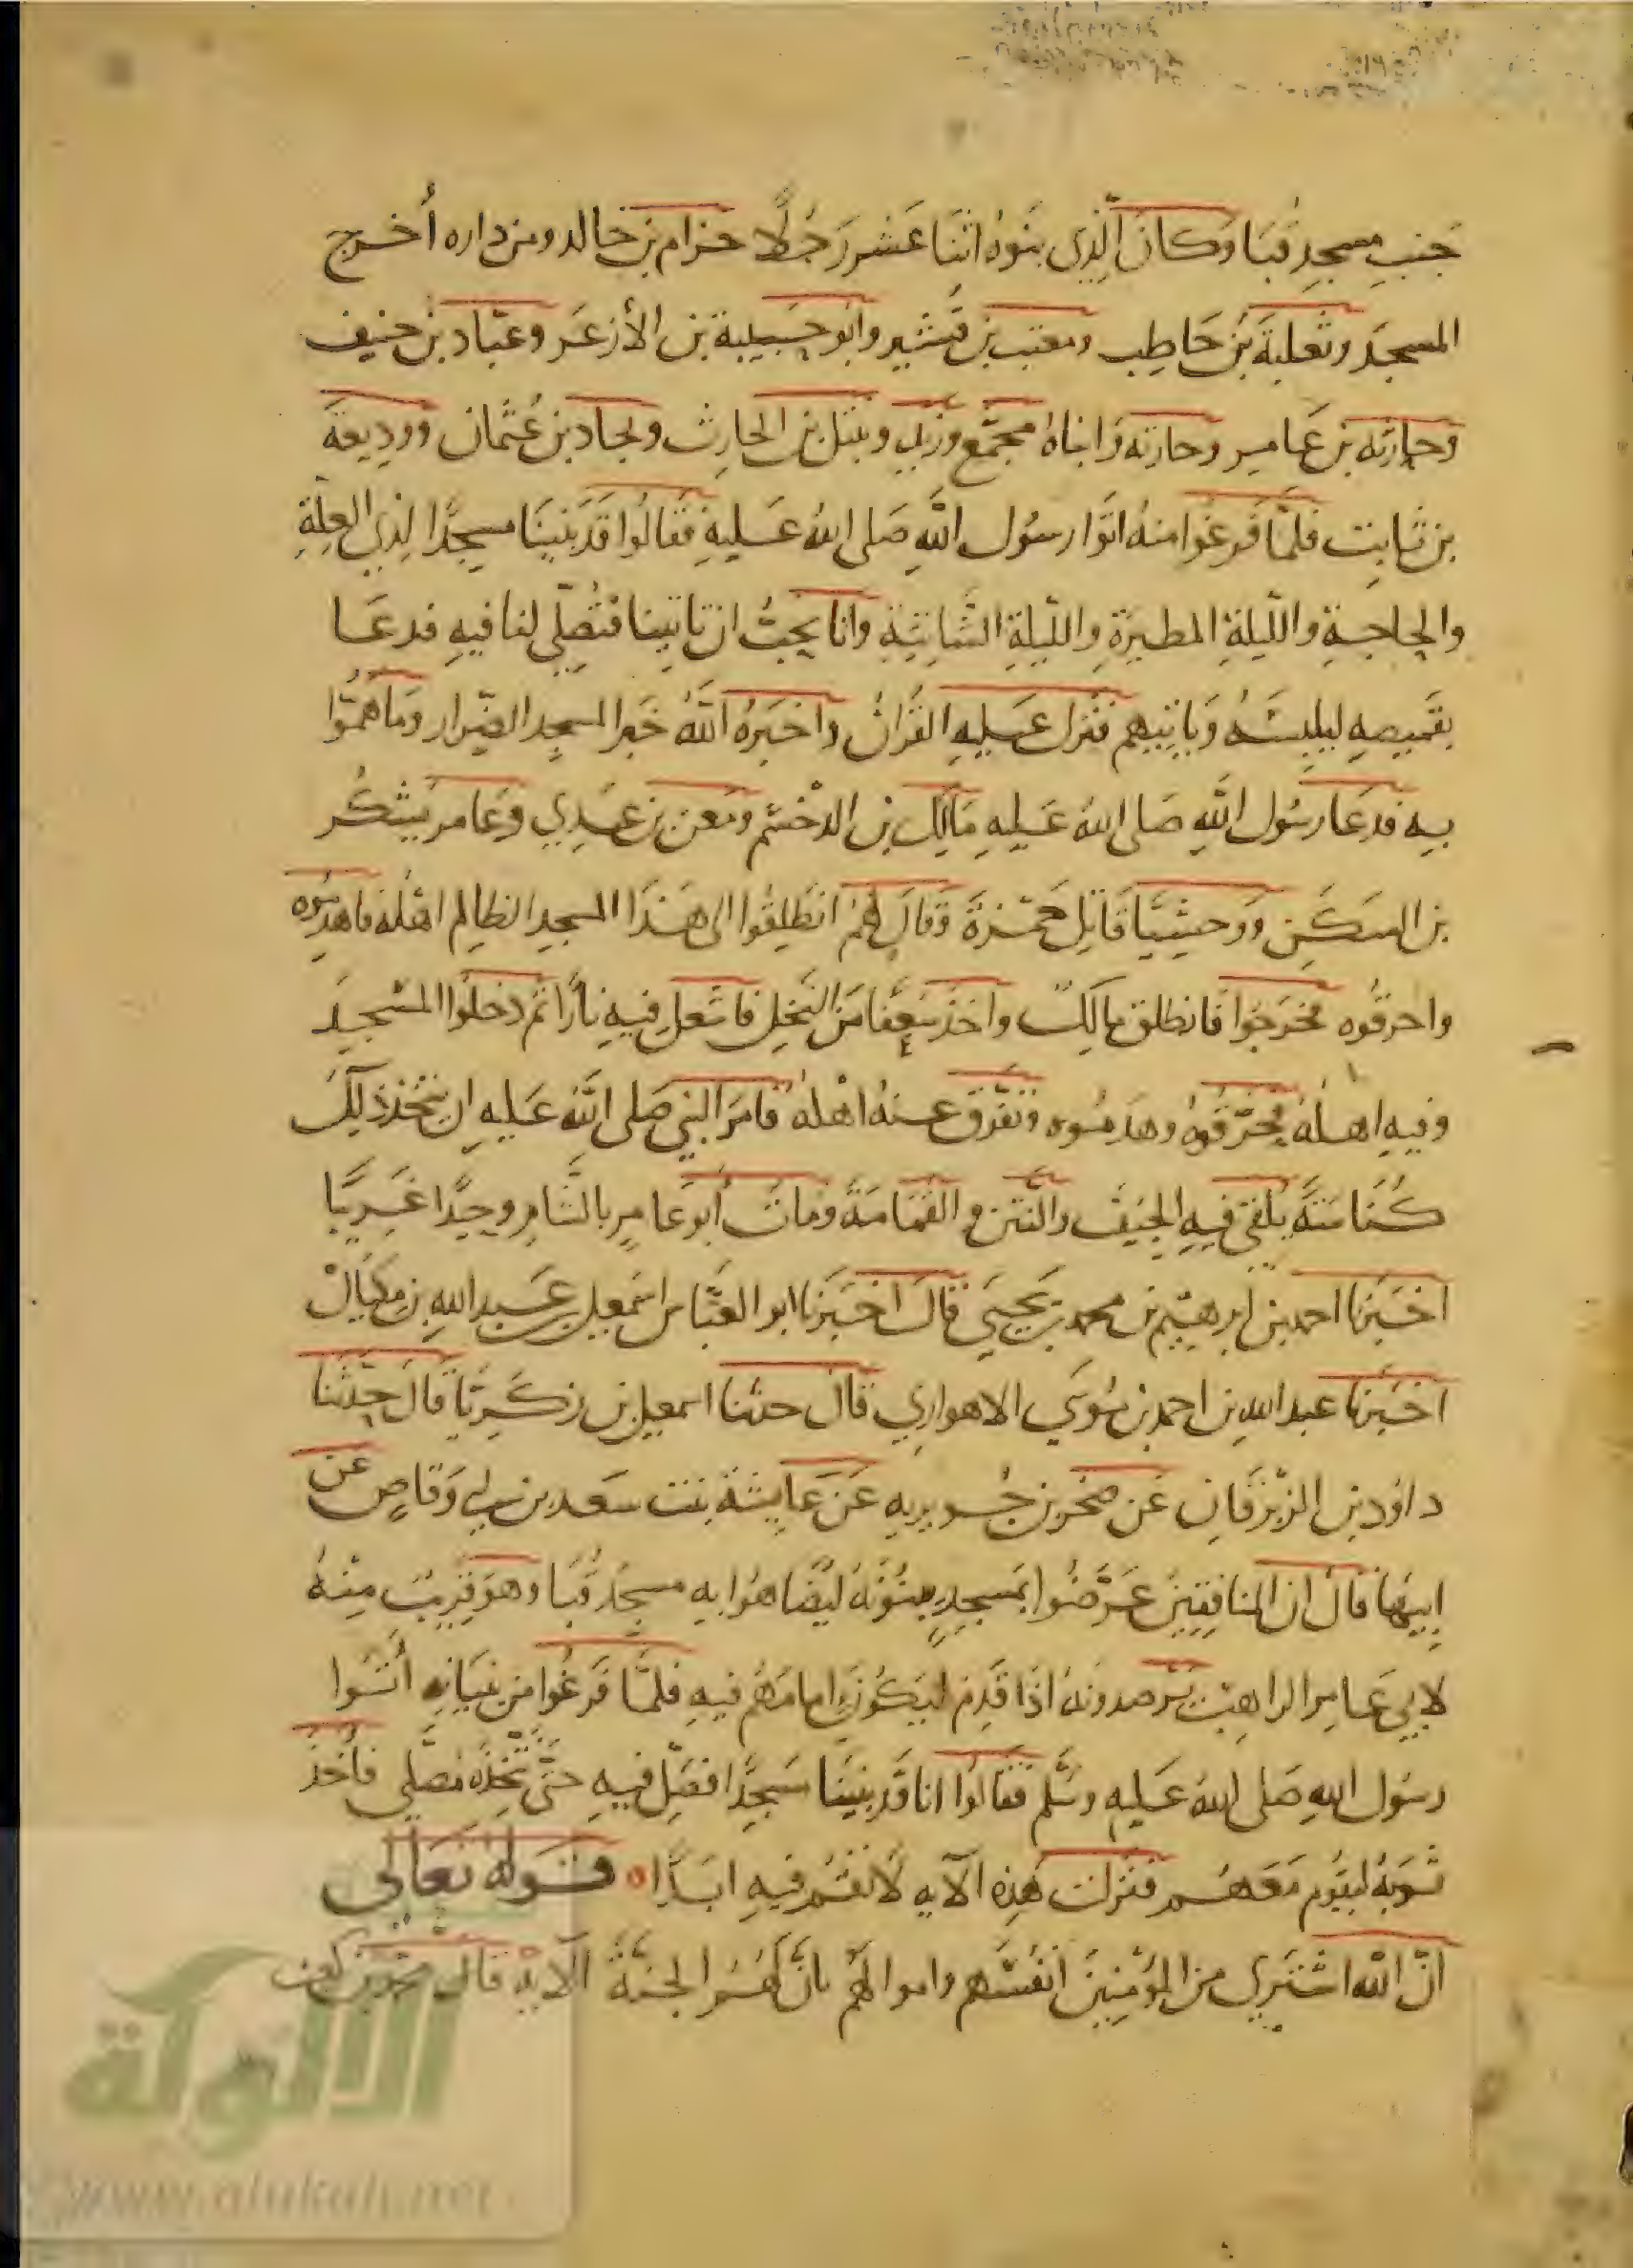 جنبِ مسجدِ قُبَا وَكانَ الَّذِى بنَوهُ اثنَا عَشر رَجُلًا حزام بن خالد ومن داره أُخرج
المسجدَ وثعلبةَ بن حَاطِب ومعتب بن قُشير وابو حَبيبة بن الأزعَر وعبّاد بن حنيف
وحارثه بن عَامر وحارثه وَابناهُ مجمّع وزيد ونبتل بن الحارِث ولجاد بن عُثمان ووديعَة
بن ثابِت فلمَّا فَرغُوا منهُ اتَوا رسُول اللَّهِ صَلى اللهُ عَليهِ فقَالُوا قَد بَنينَا مسجدًا لِذِي العِلّةِ
والحاجةِ والليلةِ المطيرَةِ والليلةِ الشَّاتيَةِ وانا نحِبُّ ان تاتينا فتُصلّي لنا فيهِ فدعَا
بقَميصهِ ليلبسَهُ وَياتيَهم فنزل عَليهِ القُرانُ واخبَرهُ اللَّهُ خبَر المسجد الضِّرار وَما همُّوا
بهِ فدعَا رسُول اللَّهِ صَلى اللهُ عَليهِ مَالِك بن الدُّخشم ومَعن بن عَدِي وعَامر بن يشكر
بن السَكن ووحشيًّا قَاتِل حَمزةَ وَقالَ لهُم انطَلِقُوا الى هَذَا المسجِد الظالِم اهْله فاهدِمُوه
واحرقُوه فخرَجُوا فانطلق مَالِك واخذ سَعفًا مَن النَّخلِ فاشعل فيهِ نارًا ثم دخلوا المسْجدَ
وفيهِ اهلهُ فحرّقُوهُ وهدمُوه وتفرّق عنهُ اهْلهُ فامَر النبي صَلى اللَّه عَليهِ ان يتخذ ذلِك
كُنَاسَةً يُلقَى فيهِ الجيَف والنتن و القمَامَة ومَات أبو عَامِرٍ بالشَّامِ وحِيدًا غَريبًا
اخبَرنا احمد بن ابرهيم بن محمد بن يَحيَى قالَ اخبَرنا ابو العبَّاس اسمعيل بن عَبد اللهِ بن مِيكَال
اخبَرنا عبد الله بن احمد بن مُوسَى الاهوازي قالَ حدثنا اسمعيل بن زكريَّا قالَ حَدّثنا
داوُد بن الزِبْرقَان عَن صَخر بن جُويريه عَن عَايشَة بنت سَعد بن ابي وَقاصٍ عَن
ابيهَا قالَ ان المنافِقين عَرَّضُوا بمَسجِدٍ يبنُونَهُ ليُضَاهُوا بهِ مَسجدَ قُبا وهوَ قريبٌ مِنهُ
لابي عَامِر الراهِب يَرصدونهُ اذا قَدِم ليَكُونَ امامَهُم فيهِ فلمَّا فَرغُوا مِن بنيَانهِ أتَوا
رسُول اللهِ صَلى اللهُ عَليهِ وسَّلم فقالُوا انا قَد بنينَا مَسجدًا فصَلِّ فيهِ حتَّى نتّخِذَهُ مُصَلَّى فأخذ
ثوبَهُ ليقوم مَعهُم فنزلت هَذِه الآيه لَا تقُم فيهِ ابَدًا ٥ قولهُ تعَالى
انّ اللَّه اشتَرى من المؤمِنِينَ انفُسَهم واموالهُم بانّ لهُمُ الجنَّةَ الآيَه قال محمّد بن كعب
الألوكة
www.alukah.net